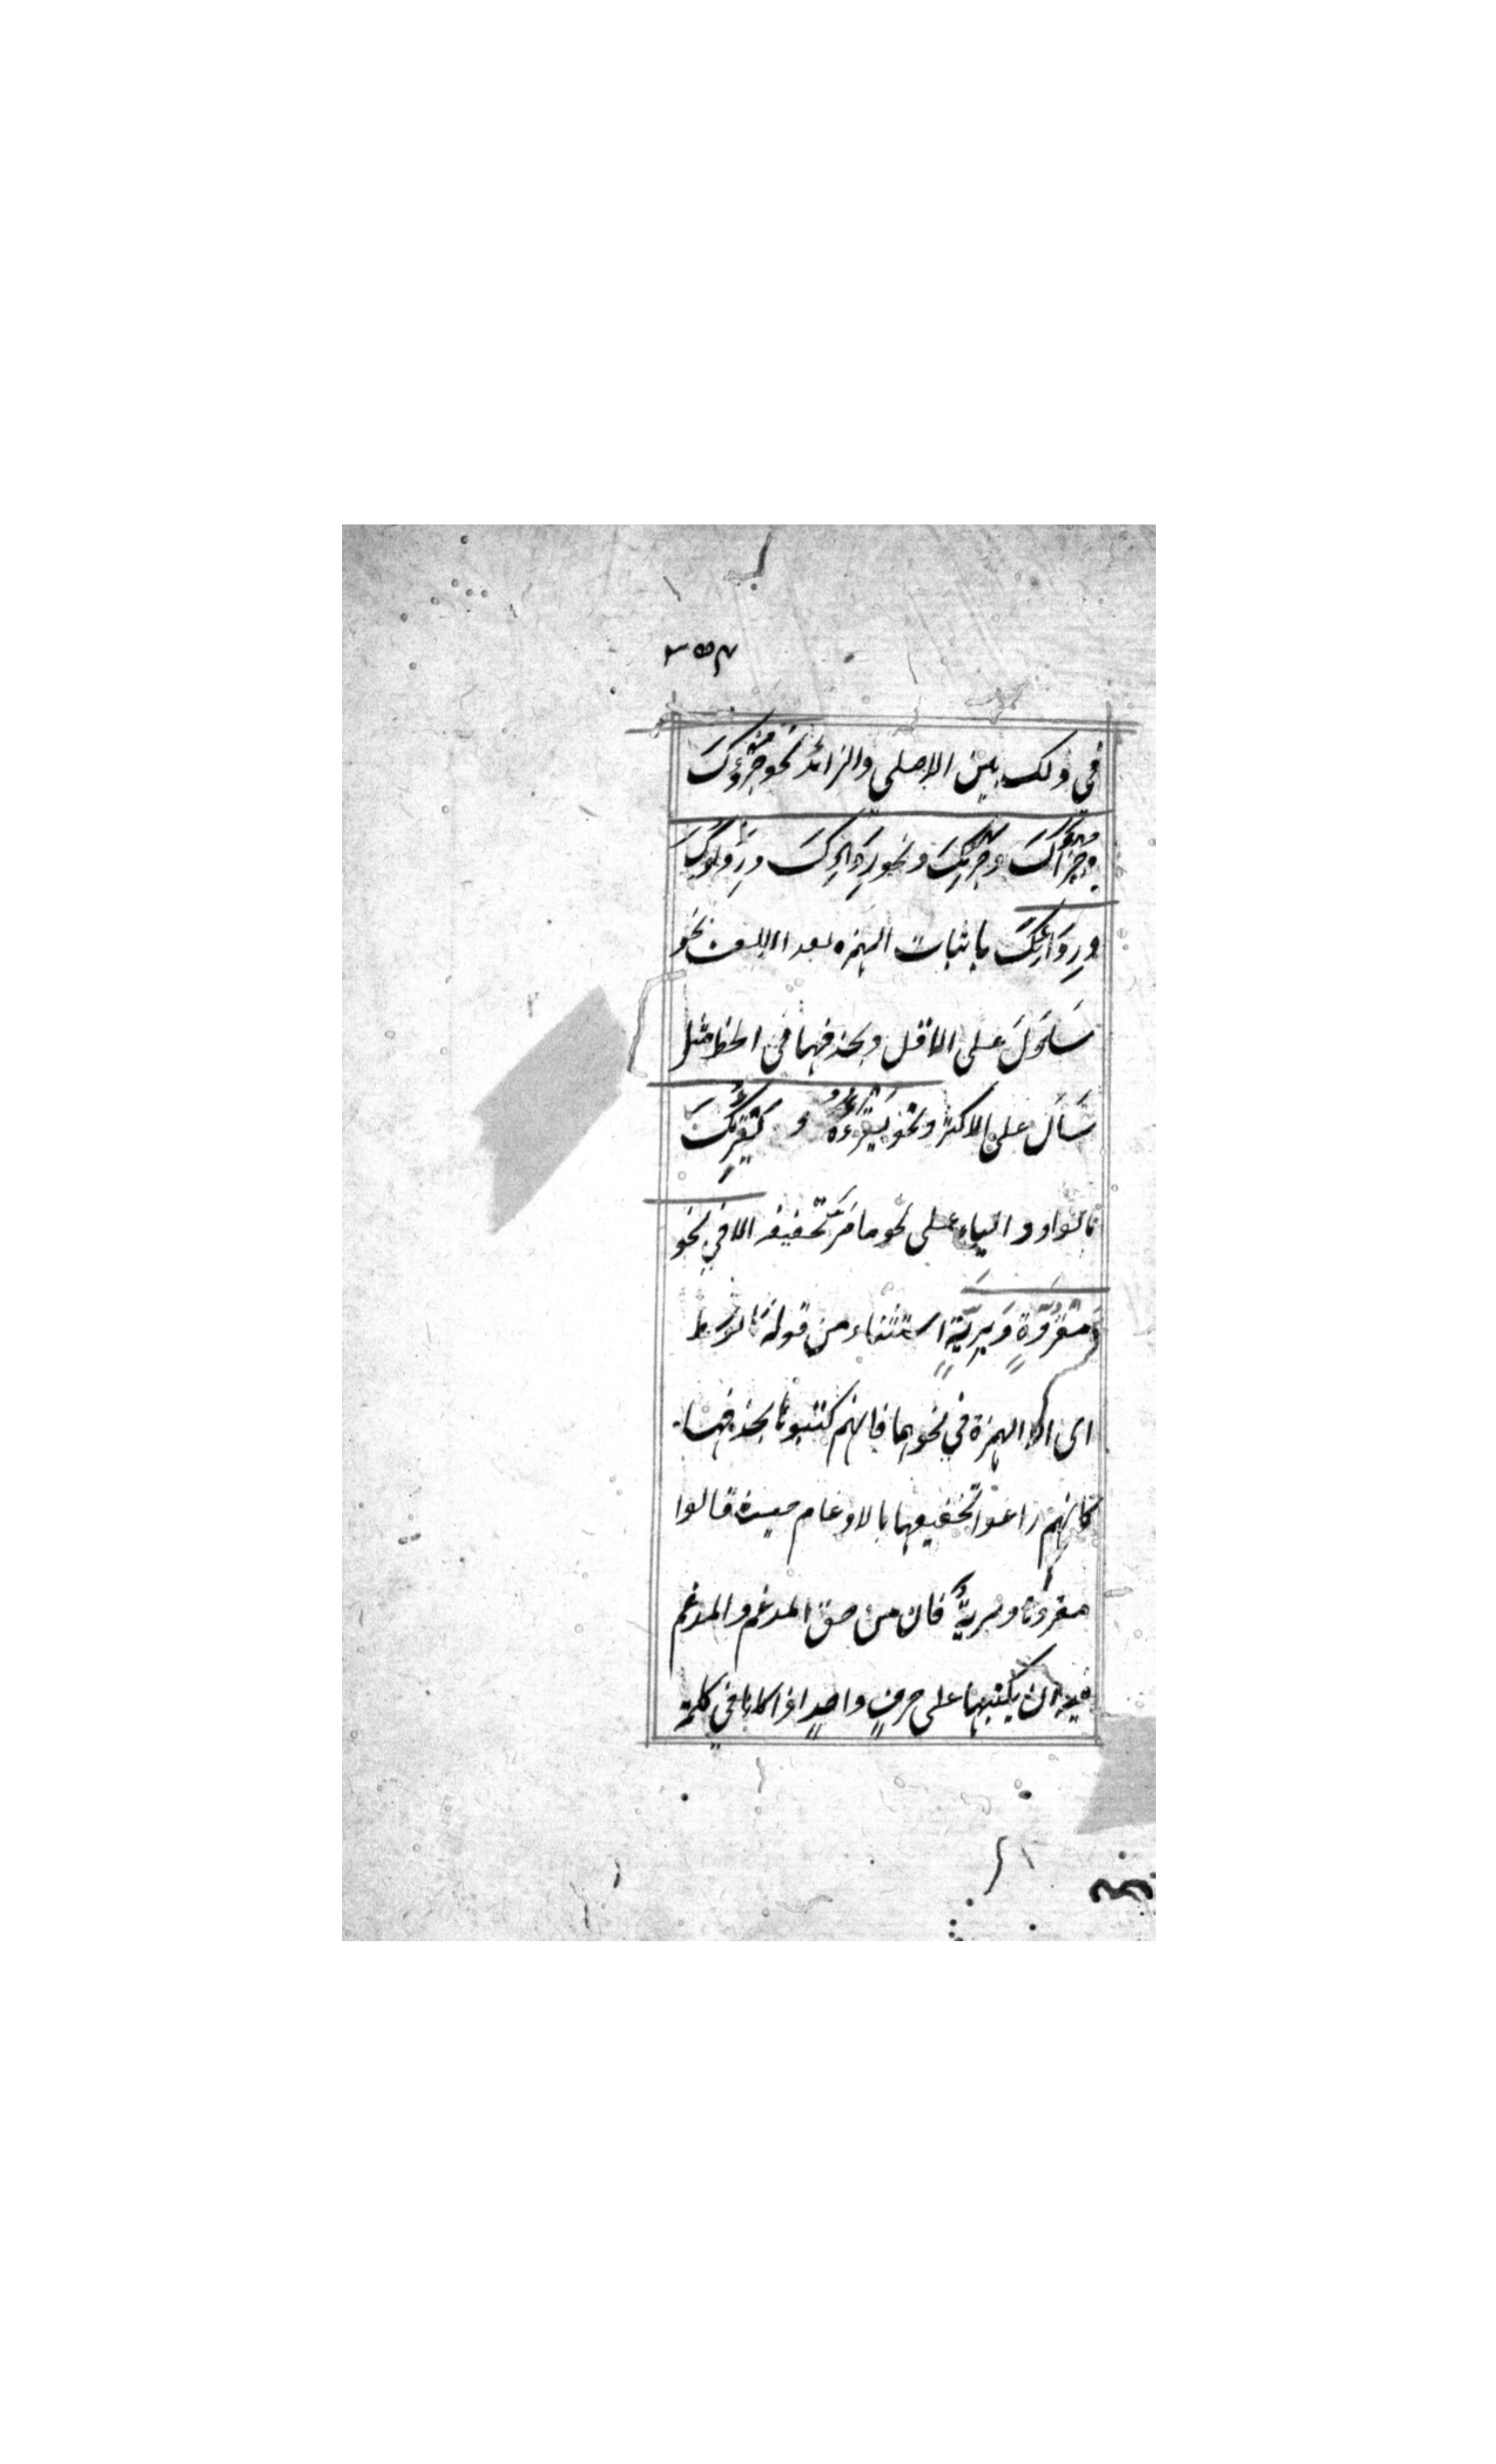 ٣٥٣
في ذلك بين الاصلي والزائد نحو جُزْؤُكَ
وجُزْأَكَ وجُزْئِكَ ونحو رِدَاءِكَ ورِدَاؤُكَ
ورِدَائِكَ باثبات الهمزه بعد الالف نحو
سَاوَلَ على الاقل وبحذفها في الخط مثل
سَاَلَ على الاكثر ونحو يَقْرَءُهُ و يُقْرِئُكَ
بالواو والياء على نحو ما مَرَّ تخفيفه الا في نحو
مَقْرُوَّةٍ وَبَرِيَّةٍ استثناء من قوله
اى الا الهمزة في نحوهما فانهم كتبوها بحذفها
كانهم راعوا تخفيفها بالادغام حيث قالوا
مقروّة وبريّة فان من حق المدغم والمدغم
فيه ان يكتبها على حرفٍ واحدٍ اذا كانا في كلمة